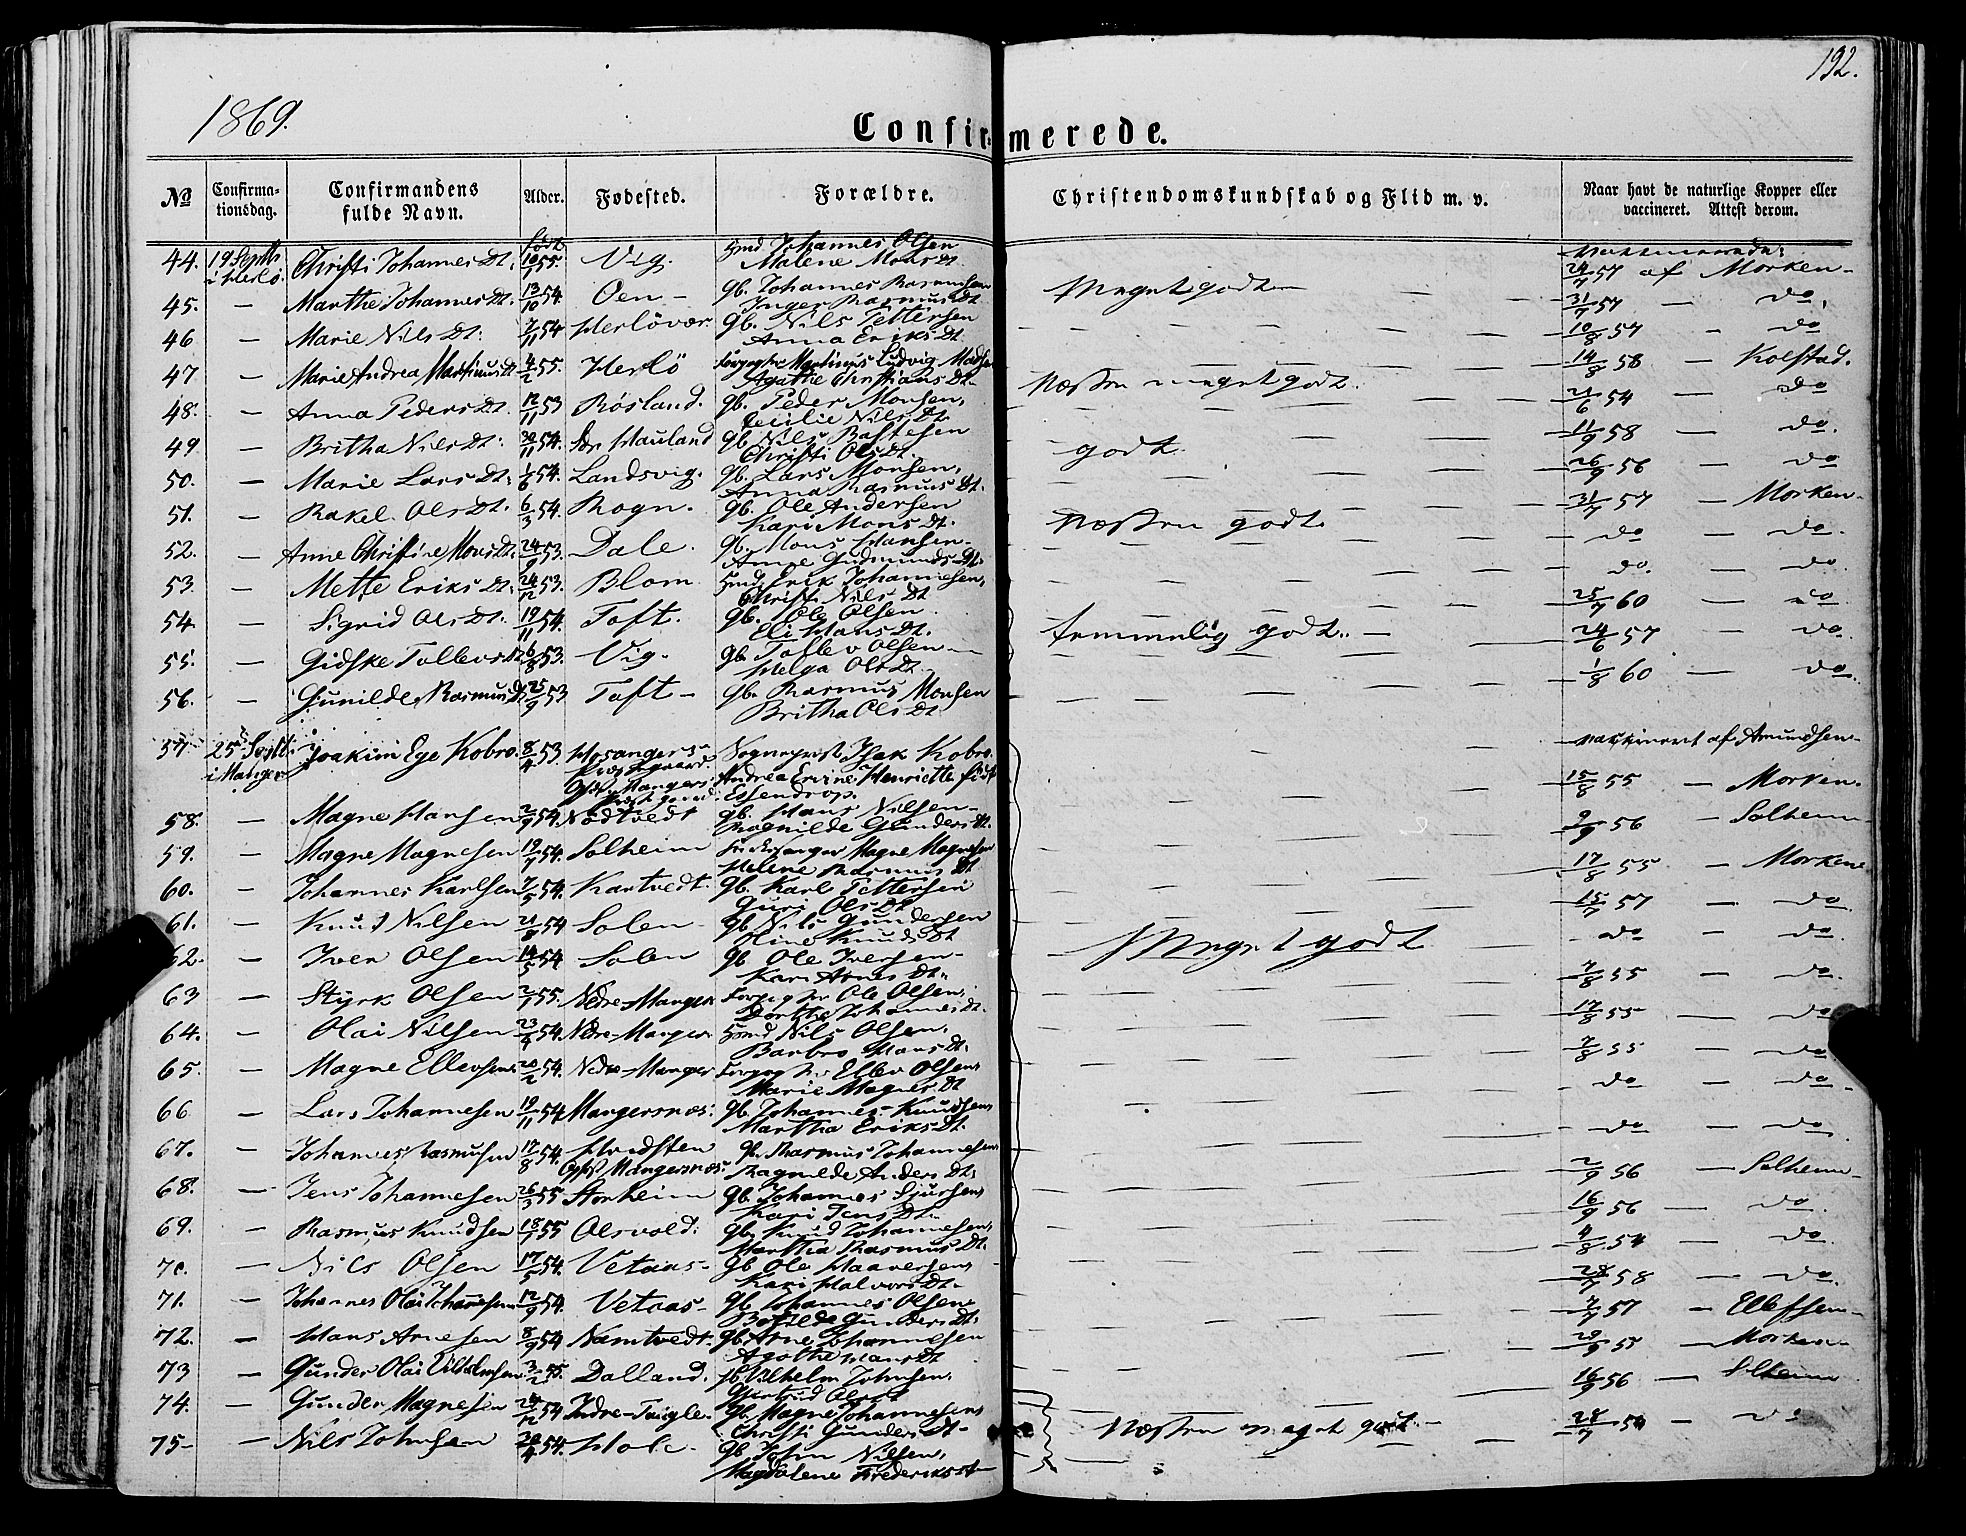 192.
1869.
Confirmerede.
No Confirmationsdag. Confirmandens fulde Navn. Alder. Fødested. Forældre. Christendomskundskab og Flid m. v. Naar havt de naturlige Kopper eller vaccineret. Attest derom.
født
44. 19 Septb i Herlö. Christi Johannes Dt. 10/1 55. Vig. Johannes Olsen
Malene Mons Dt. 24/7 57 af Morken
45. — Marthe Johannes Dt. 13/10 54 Oen — gb. Johannes Rasmusen Meget godt — 31/7 57 — do.
Inger Rasmus Dt.
46 — Marie Nils Dt. 7/11 54 Herlövær. gb. Nils Pettersen 10/8 57 — do
Anna Eriks Dt.
47 — Marie Andrea Martinus Dt 4/2 55. Herlö Martinus Ludvig Madsen 14/8 58 — Kolstad.
Agathe Christians Dt.
48. — Anna Peders Dt. 12/11 53 Rösland. gb. Peder Monsen, Næsten meget godt. 21/6 54 — do
Cecilie Nils Dt.
49 — Britha Nils Dt. 30/11 54. Hauland gb. Nils Bastesen 11/9 58 — do.
Christi Ols Dt.
50. — Marie Lars Dt. 1/6 54. Landsvig. gb. Lars Monsen, godt. 26/9 56 — do
Anna Rasmus Dt.
51. — Rakel Ols Dt. 6/3 54. Rogn. gb. Ole Andersen 31/7 57 — Morken
Kari Mons Dt.
52. — Anne Christine Mons Dt. 24/9 53. Dale. gb. Mons Hansen Næsten godt. — do — do.
Anne Gudmunds Dt.
53. — Mette Eriks Dt. 24/12 53. Blom Erik Johannesen, do. — do
Christi Nils Dt
54. — Sigrid Ols Dt. 19/11 54. Toft. gb. Ole Olsen 25/7 60 — do
Eli Hans Dt.
55. — Gidske Tollevs Dt 6/8 53. Vig. gb. Tollev Olsen temmelig godt. — 24/6 57 — do.
Helga Ols Dt.
56. — Gunilde Rasmus Dt 25/9 53 Toft — gb. Rasmus Monsen 1/8 60 — do.
Britha Ols Dt
57 25 Septb. i Manger Joakim Ege Kobro. 8/4 53. Hosangers Præstgaard. Sogneprest Isak Kobro. vaccineret af Amundsen
Opf. Mangers Præstgaard Andrea Ervine Henriette født Essendrop. 15/8 55 — Morken.
58. — Magne Hansen 2/9 54. Nödtvedt gb. Hans Nilsen 9/9 56 — Solheim
Ragnilde Gunders Dt.
59. — Magne Magnesen 19/7 54. Solheim Magne Magnesen 17/8 55 — Morkene
Helene Rasmus Dt
60. — Johannes Karlsen 7/5 54. Kartvedt. gb. Karl Pettersen 15/7 57 — do
Guri Ols Dt
61. — Knud Nilsen 21/8 54 Solen — gb Nils Gundersen do — do
Oline Knuds Dt
62. — Iver Olsen 14/5 54 Solen gb Ole Iversen Meget godt 7/8 55 — do
Kari Arnes Dt.
63 — Styrk Olsen 2/1 55. Nedre-Manger Ole Olsen, 17/8 55 — do
Dorthe Johannes Dt.
64. — Olai Nilsen 23/4 54. Nedre-Manger Nils Olsen, 7/8 55 — do
Barbro Hans Dt.
65. — Magne Ellevsen 20/2 54. Nedre-Manger Ellev Olsen, do — do
Marie Magnes Dt
66 — Lars Johannesen 19/11 54 Mangersnæs. gb. Johannes Knudsen do — do
Martha Eriks Dt.
67. — Johannes Rasmusen 17/8 54. gb. Rasmus Johannesen 2/9 56 — Solheim
Opf. Mangersnæs. Ragnilde Anders Dt.
68. — Jens Johannesen 26/3 55 Storheim gb. Johannes Sjursen 16/9 56 — do
Kari Jens Dt.
69. — Rasmus Knudsen 18/1 55 Alsvold. gb. Knud Johannesen, 11/8 54 — do
Martha Rasmus Dt.
70. — Nils Olsen 17/5 54. Vetaas — gb Ole 28/7 58 — do.
Kari Halvors Dt.
71. — Johannes Olai Johannesen 12/9 54. Vetaas — gb. Johannes Olsen 7/7 57 — Ellefsen
Botilde Gunders Dt.
72. — Hans Arnesen 8/9 54 Namtvedt. gb. Arne Johannesen 20/9 55 — Morken
Agathe Hans Dt
73 — Gunder Olai Vilhelmsen 3/2 55. Dalland. Vilhelm Johnsen, 16/9 56 — Solheim
Gjertrud Ols Dt
74. — Gunder Magnesen 24/12 54 Indre-Toigle. gb. Magne Johannesen 28/7 54 — do
Christi Gunders Dt
75 — Nils Johnsen 20/4 54. Hole gb. John Nilsen, Næsten meget godt.
Magdalene Frederiks Dt